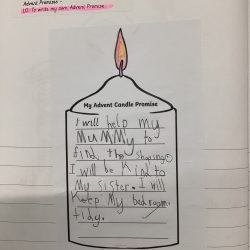 Advent Promises -
LO: To write my own Advent Promise.
My Advent Candle Promise
I will help my
Mummy to
find the shopping.
I will be Kind to
My Sister. I will
Keep My bedroom
tidy.